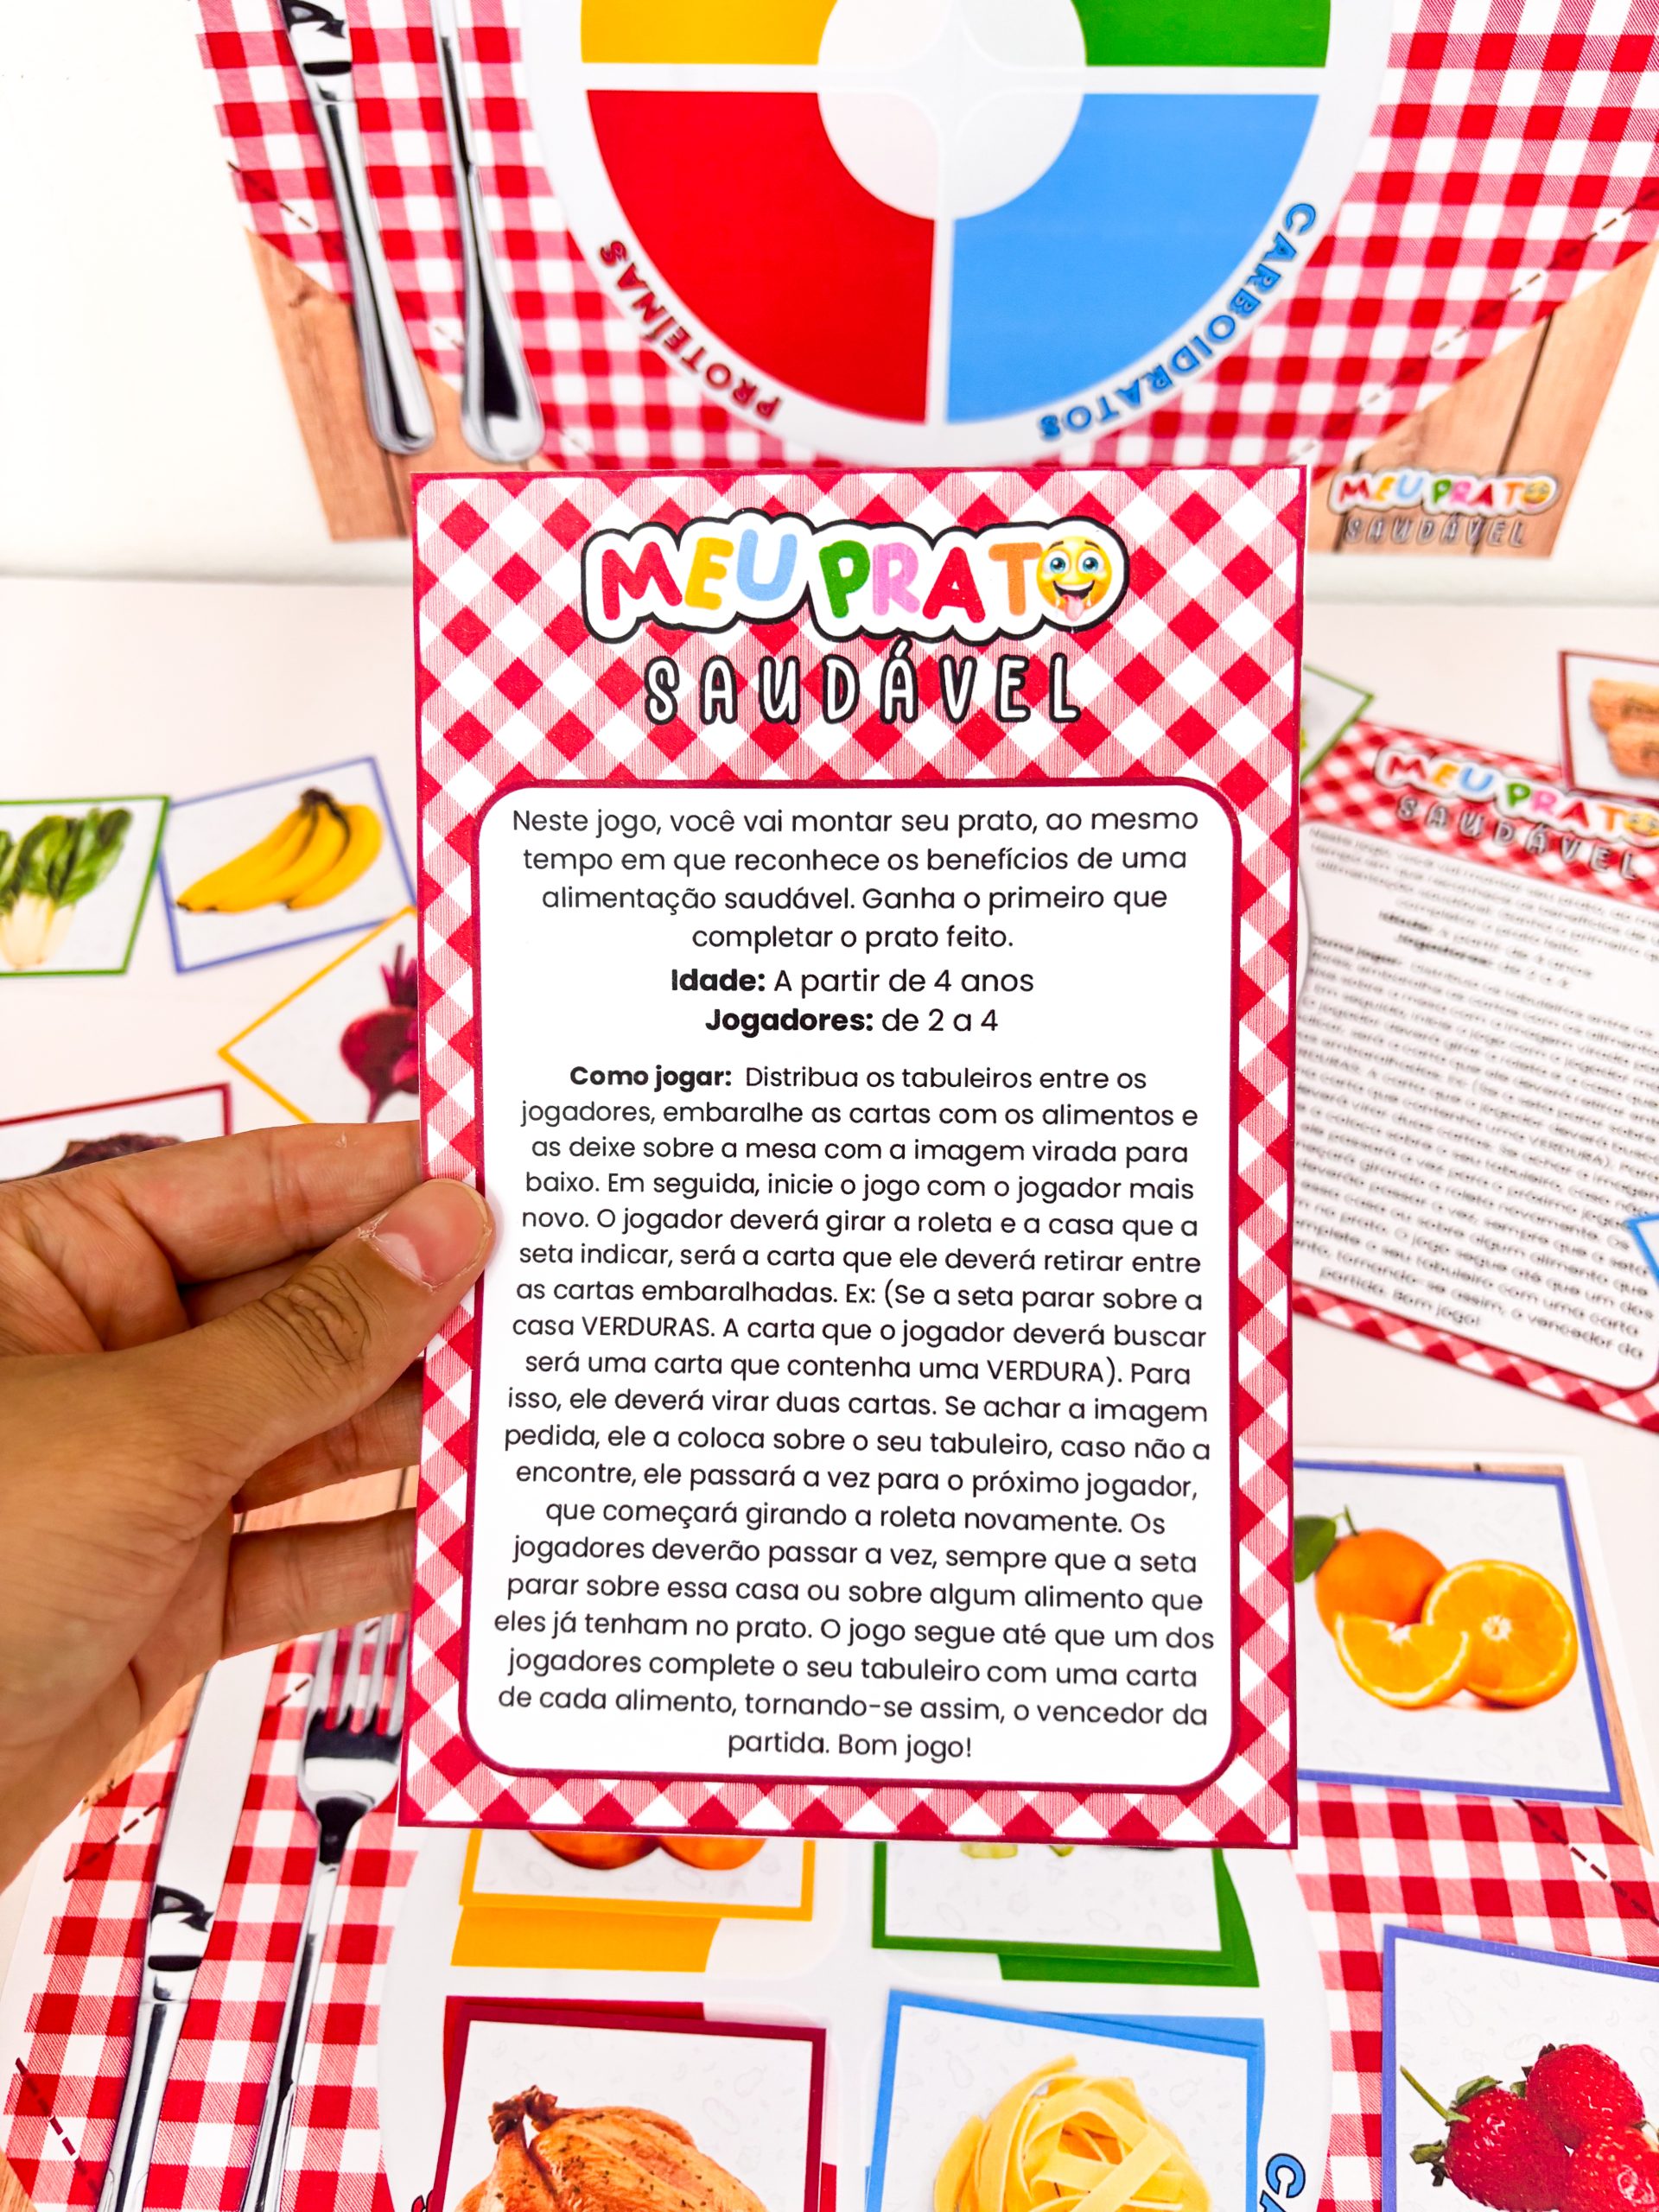 PROTEÍNAS
CARBOIDRATOS
MEU PRATO
SAUDÁVEL
MEU PRATO
SAUDÁVEL
Neste jogo, você vai montar seu prato, ao mesmo
tempo em que reconhece os benefícios de uma
alimentação saudável. Ganha o primeiro que
completar o prato feito.
Idade: A partir de 4 anos
Jogadores: de 2 a 4
Como jogar: Distribua os tabuleiros entre os
jogadores, embaralhe as cartas com os alimentos e
as deixe sobre a mesa com a imagem virada para
baixo. Em seguida, inicie o jogo com o jogador mais
novo. O jogador deverá girar a roleta e a casa que a
seta indicar, será a carta que ele deverá retirar entre
as cartas embaralhadas. Ex: (Se a seta parar sobre a
casa VERDURAS. A carta que o jogador deverá buscar
será uma carta que contenha uma VERDURA). Para
isso, ele deverá virar duas cartas. Se achar a imagem
pedida, ele a coloca sobre o seu tabuleiro, caso não a
encontre, ele passará a vez para o próximo jogador,
que começará girando a roleta novamente. Os
jogadores deverão passar a vez, sempre que a seta
parar sobre essa casa ou sobre algum alimento que
eles já tenham no prato. O jogo segue até que um dos
jogadores complete o seu tabuleiro com uma carta
de cada alimento, tornando-se assim, o vencedor da
partida. Bom jogo!
MEU PRATO
SAUDÁVEL
partida. Bom jogo!